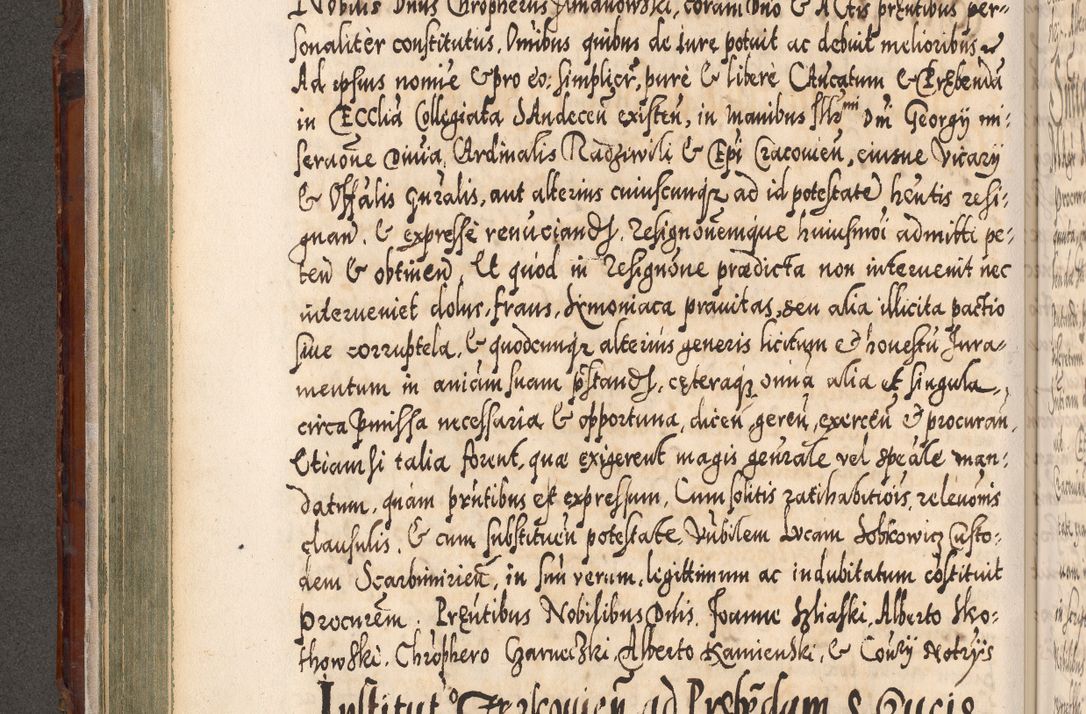 Nobilis Dnus Chropherus Jmanowski, coram Dno & Actis prntibus per-
sonaliter constitutus, Omibus quibus de Iure potuit ac debuit melioribus
Ad ipsius nomie & pro eo, simplicr, pure & libere Cancatum & Præbendã
in Ecclia Collegiata SAndeceñ existeñ, in manibus Illmi Dni Georgij mi-
seraone Diuia, Cardinalis Radziwili & Epi Cracouieñ, eiusue Vicarij
& Offalis gnralis, aut alterius cuiuscunqz ad id potestatẽ hentis resi-
gnan. & expresse renũciandj. Resignonemque huiusmoi admitti pe-
teñ & obtineñ, Et quod in resignone prædicta non interuenit nec
interueniet dolus, fraus, simoniaca prauitas, seu alia illicita pactio
siue corruptela, & quodcunqz alterius generis licitum & honestũ Jura-
mentum in animam suam pstandj, cęteraqz omnia alia et singula
circa pmissa necessaria & opportuna, diceñ, gereñ, exerceñ & procuran,
Etiamsi talia forent, quæ exigerent magis genrale vel speale man-
datum, quam prntibus est expressum, Cum solitis ratihabitiois, releuonis
clausulis, & cum substitueñ potestate, Nobilem Lucam Sobkowicz Custo-
dem Scarbimirieñ, in suũ verum, legittimum ac indubitatum cõstituit
procurem. Præntibus Nobilibus Dnis, Joanne Szliaski, Alberto Sko-
thowski, Chrophero Czarneczki, Alberto Kamienski, & Couẏ Notrijs
Institut° Crakouien ad Prebedam S. Ducis